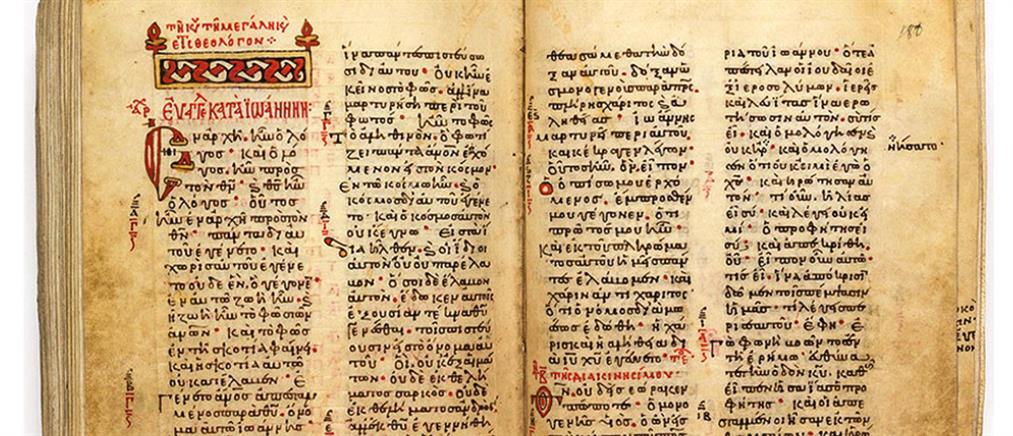 τῆ κυ τῆ μεγάλη κυ
εἰς τ θεολόγον
Εὐαγ κατὰ Ἰωάννην:
Ἐν ἀρχῆ ἦν ὁ λό
γος · καὶ ὁ λό
γος ἦν προς
τὸν θν · καὶ θς ἦν
ὁ λόγος · οὗτος
ἦν ἐν ἀρχῆ πρὸς τὸν
θν · πάντα δι αὐ
τοῦ ἐγένετο · καὶ
χωρὶς αὐτοῦ ἐγένε
το οὐδὲ ἕν, ὃ γέγονε·
ἐν αὐτῶ ζωὴ ἦν · καὶ
ἡ ζωὴ ἦν τὸ φῶς τῶν
ἀνων · καὶ τὸ φῶς
ἐν τῆ σκοτία φαίνει·
καὶ ἡ σκοτία αὐτὸ
οὐ κατέλαβεν · Ἐ
γένετο ἄνος ἀπεσταλ
μένος παρὰ θυ · ὄνο
μα αὐτῶ ἰωάννης
ἵνα πάντες πιστεύσω
σι δι αὐτοῦ · οὐκ ἦν ἐ
κεῖνος τὸ φῶς · ἀλλ ἵνα
μαρτυρήση περὶ τοῦ
φωτός · ἦν τὸ φῶς
τὸ ἀληθινὸν · ὃ φωτί
ζει πάντα ἄνον ἐρχό
μενον εἰς τὸν κόσμον·
Ἐν τῶ κόσμω ἦν · καὶ ὁ
κόσμος δι αὐτοῦ ἐγένε
το · καὶ ὁ κόσμος αὐτὸν
οὐκ ἔγνω · Εἰς τὰ ἴ
δια ἦλθεν · καὶ οἱ ἴδιοι
αὐτὸν οὐ παρέλα
βον · ὅσοι δὲ ἔλαβον
αὐτὸν · ἔδωκεν αὐτοῖς
ἐξουσίαν τέκνα θυ
γενέσθαι · τοῖς πιστεύ
ουσιν εἰς τὸ ὄνομα αὐ
τοῦ · οἳ οὐκ ἐξ αἱμά
των · οὐδὲ ἐκ θελή
ματος σαρκός · οὐδὲ
ἐκ θελήματος ἀνδρός·
ἀλλ ἐκ θυ ἐγεννήθη
θεασάμεθα τὴν δό
ξαν αὐτοῦ · δόξαν ὡς
μονογενοῦς παρὰ πρς
πλήρης χάριτος καὶ ἀ
ληθείας · ἰωάννης
μαρτυρεῖ περὶ αὐτοῦ
καὶ κέκραγε λέγων
οὗτος ἦν, ὃν εἶπον
ὁ ὀπίσω μου ἐρχό
μενος, ἔμπροσθέν
μου γέγονεν, ὅτι
πρῶτός μου ἦν·
καὶ ἐκ τοῦ πληρώμα
τος αὐτοῦ ἡμεῖς πάν
τες ἐλάβομεν · καὶ
χάριν ἀντὶ χάριτος·
ὅτι ὁ νόμος διὰ μω
σέως ἐδόθη · ἡ χά
ρις καὶ ἡ ἀλήθεια δι
ὰ ιυ χυ ἐγένετο·
τῆ β τῆς διακινησίμου
Θν οὐδεὶς ἑώρακεν
πώποτε · ὁ μονο
γενὴς υς · ὁ ὢν εἰς
180
ρία τοῦ ἰωάννου · ὅτε ἀ
πέστειλαν οἱ ἰουδαῖοι ἐ
ξ ἱεροσολύμων · ἱερεῖς
καὶ λευίτας ἵνα ἐρω
τήσωσιν αὐτόν · σὺ τίς
εἶ · καὶ ὡμολόγησεν καὶ
οὐκ ἠρ · καὶ ὡμολόγη
ἠρνήσατο·
σεν ὅτι οὐκ εἰμὶ ἐγὼ ὁ
χς · καὶ ἠρώτησαν αὐ
τόν · τί οὖν · ἠλίας
εἶ σύ · καὶ λέγει οὐκ εἰ
μί · ὁ προφήτης εἶ
σύ · καὶ ἀπεκρίθη·
οὔ · εἶπον οὖν αὐ
τῶ τίς εἶ · ἵνα ἀπόκρισιν
δῶμεν τοῖς πέμψασιν
ἡμᾶς · τί λέγεις πε
ρὶ σεαυτοῦ · ἔφη · Ἐ
γὼ φωνὴ βοῶντος ἐν
τῆ ἐρήμω · εὐθύνα
τε τὴν ὁδὸν κυ · καθὼς
εἶπεν ἡσαΐας ὁ προ
φήτης · καὶ οἱ ἀπε
σταλμένοι ἦσαν ἐκ